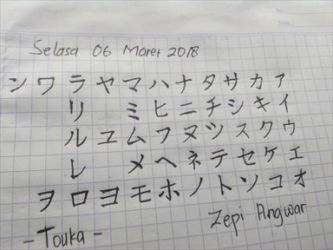 Selasa 06 Maret 2018
シワラヤマハナタサカァ
リミヒニチシキイ
ルユムフヌツスクウ
レメヘネテセケエ
ヲロヨモホノトソコオ
Zepi Angwar
- Touka -